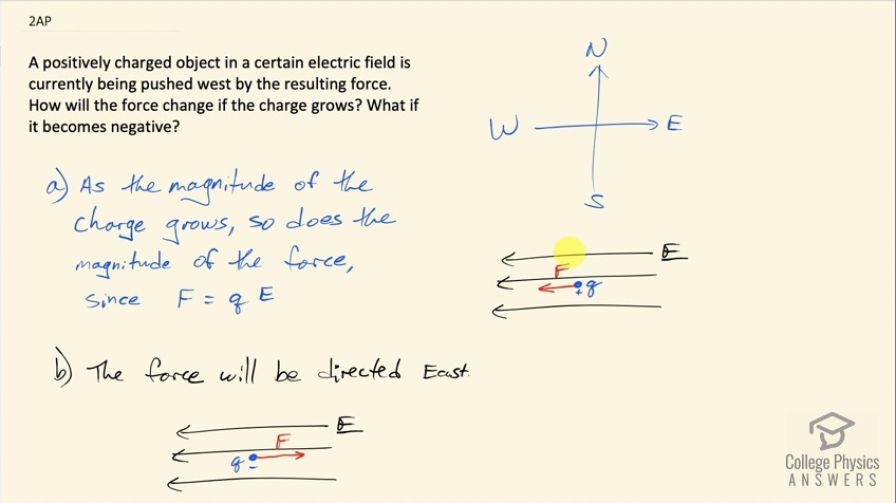 2AP
A positively charged object in a certain electric field is
currently being pushed west by the resulting force.
How will the force change if the charge grows? What if
it becomes negative?
N
W E
S
a) As the magnitude of the
charge grows, so does the
magnitude of the force,
since F = q E
E
F
+ q
b) The force will be directed East.
E
F
q -
College Physics
ANSWERS